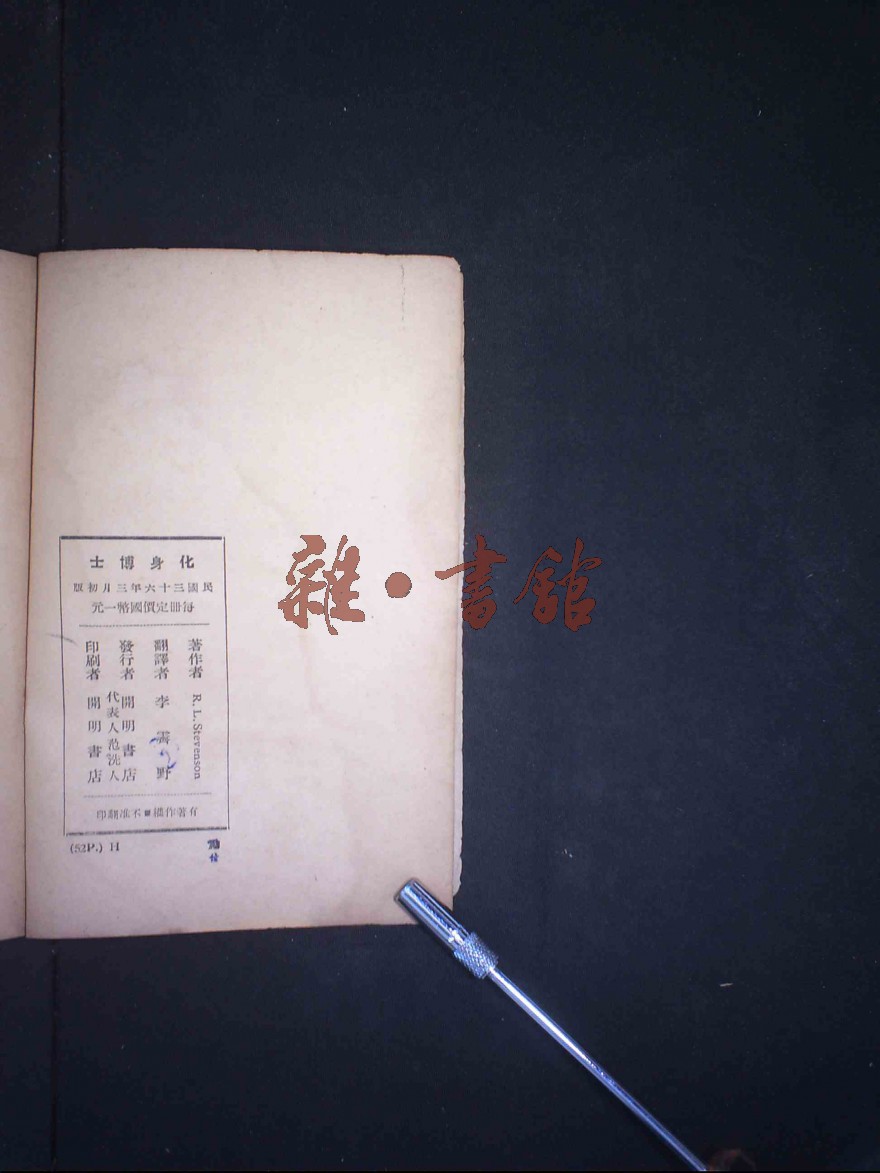 化身博士
民國三十六年三月初版
每冊定價國幣一元
著作者 R. L. Stevenson
翻譯者 李霽野
發行者 開明書店
代表人范洗人
印刷者 開明書店
有著作權■不准翻印
(52P.) H
雜·書館